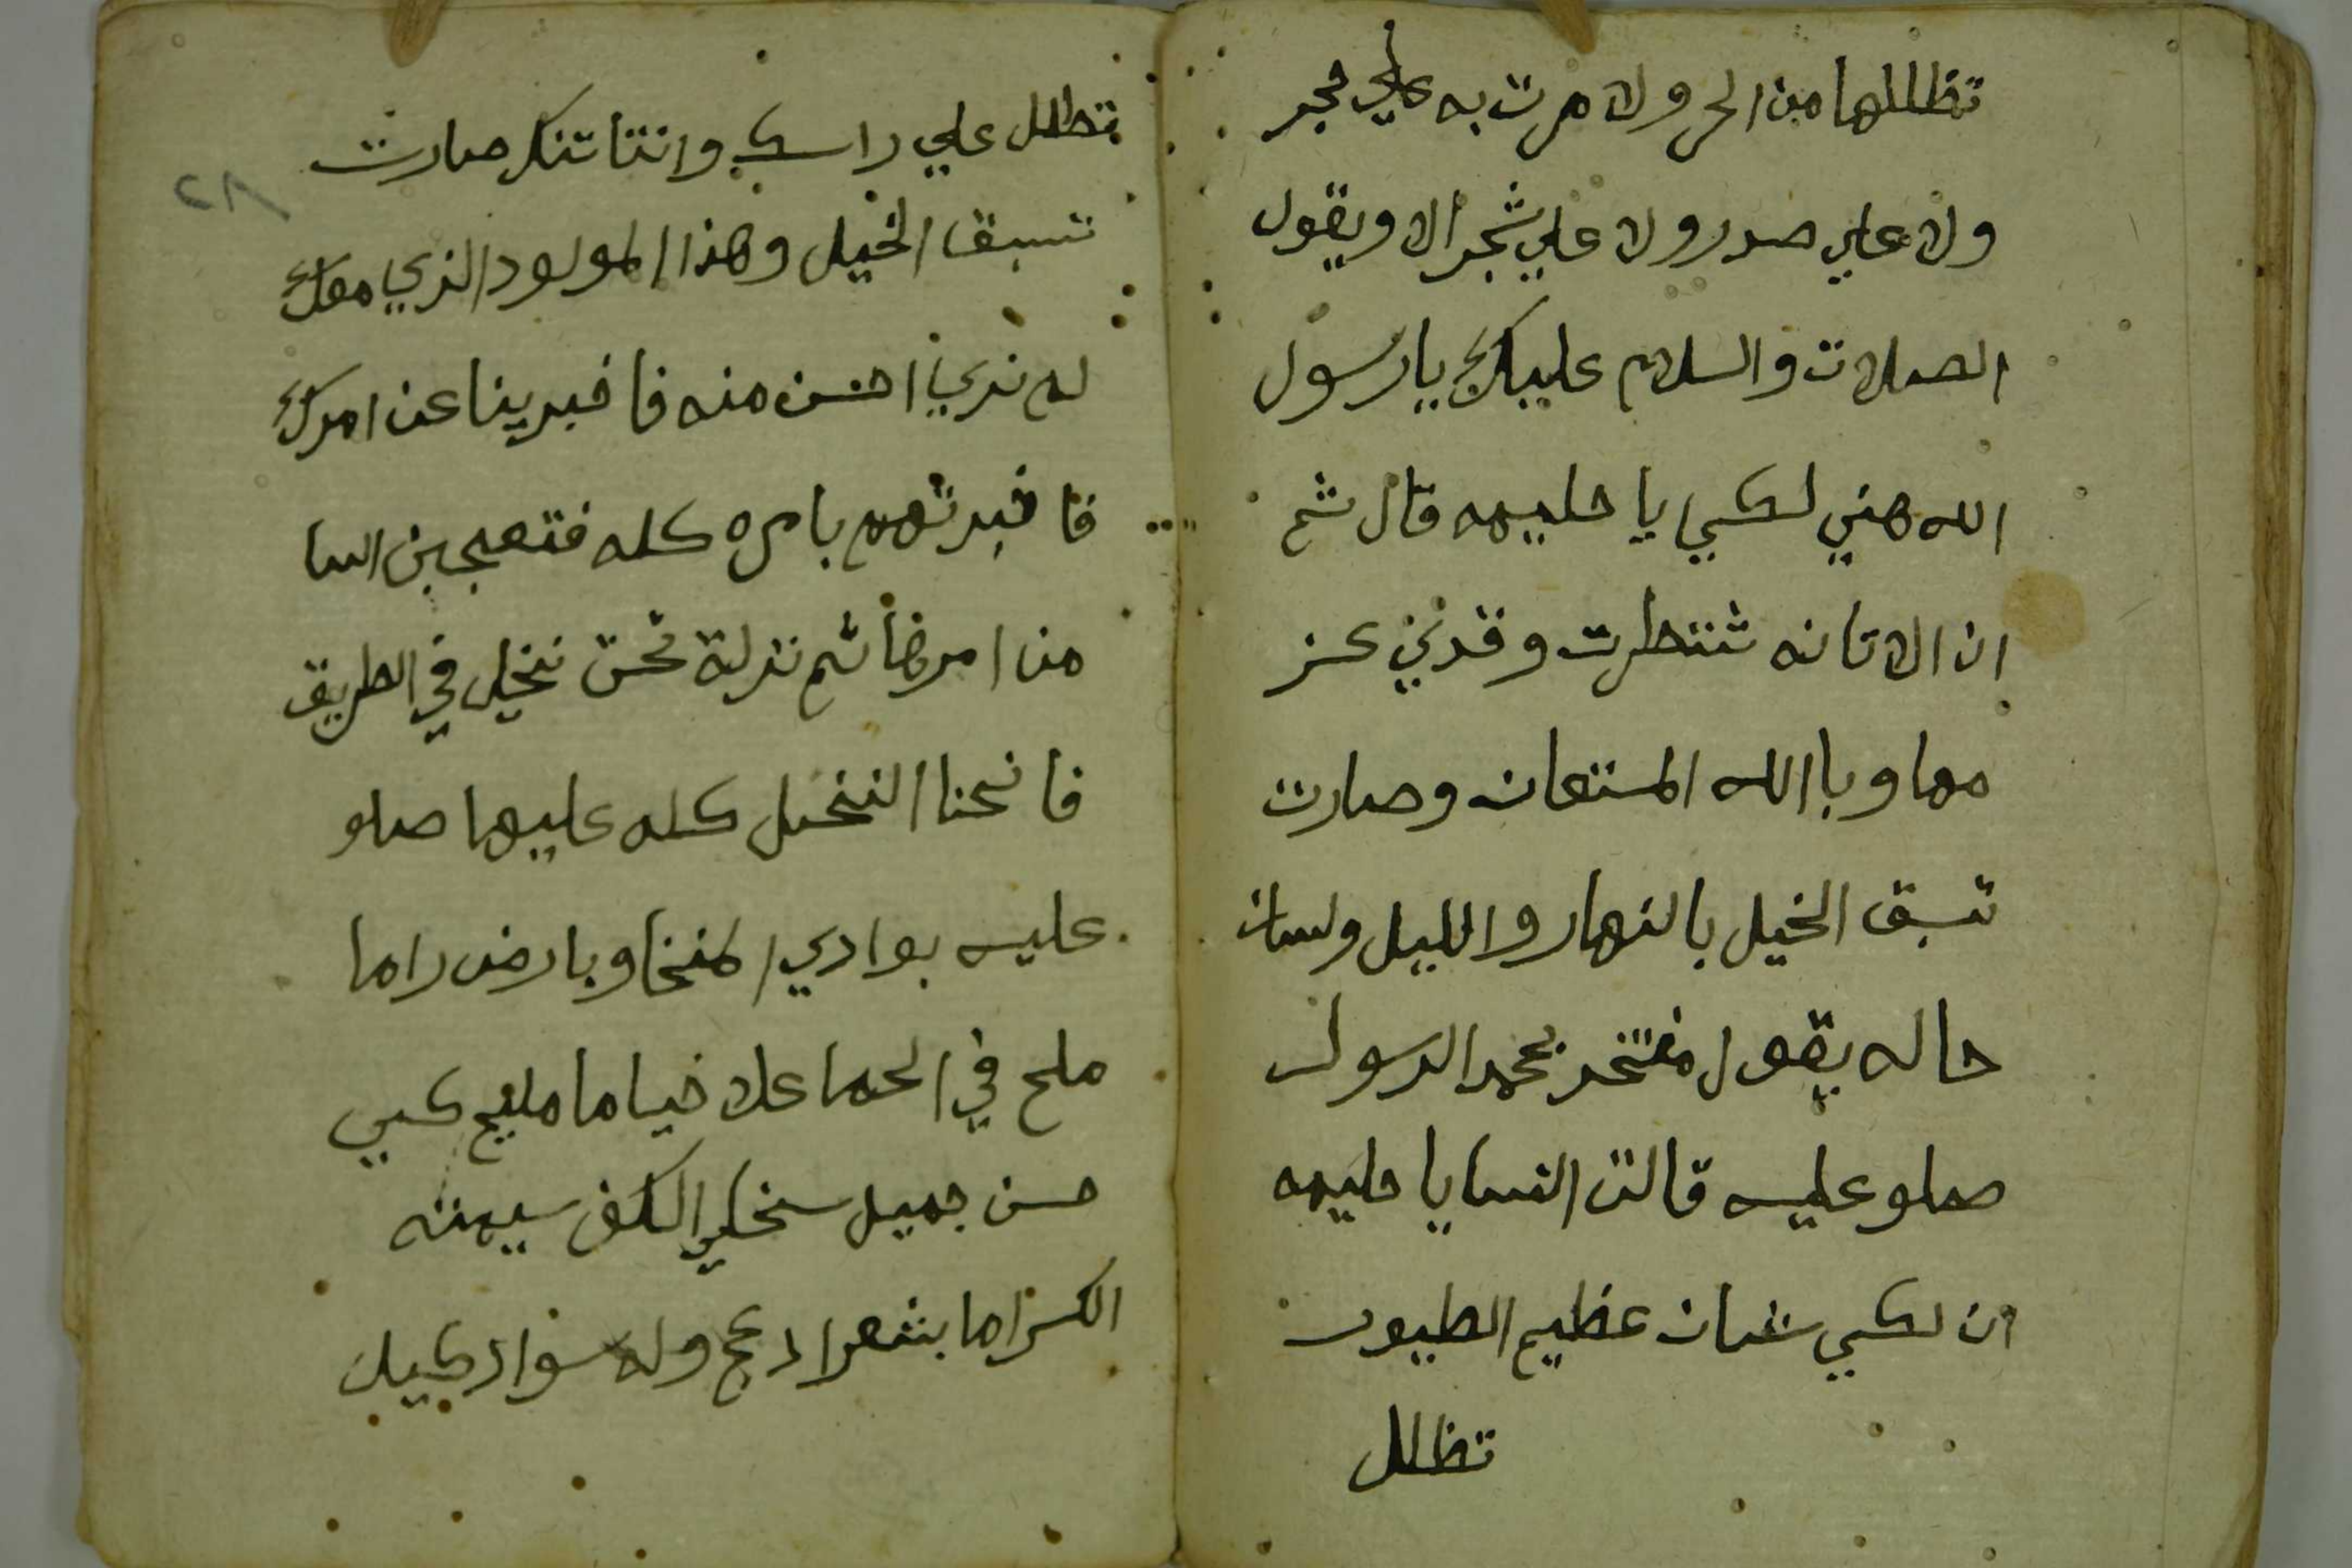 تظللها من الحر ولا مرت به علي حجر
ولا علي مدر ولا علي شجر الا ويقول
الصلات والسلام عليك يا رسول
الله هني لكي يا حليمه قال ثم
ان الاتانه تنتطرت وقدني عز
مها وبا الله المستعان وصارت
تسبق الخيل بالنهار والليل ولسان
حاله يقول مفتخر بمحمد الرسول
صلو عليه قالت النسا يا حليمه
ان لكي شان عظيم الطيور
تظلل
تظلل علي راسك وانتاتنك صارت
تسبق الخيل وهذا المولود الذي معك
لم نري احسن منه فاخبرينا عن امرك
فاخبرتهم بامره كله فتعجبن النسا
من امرها ثم نزلة تحت نخيل في الطريق
فانحنا النخيل كله عليها صلو
عليه بوادي المنحنا وبارض راما
ملح في الحما علا خياما مليح كبي
حسن جميل سخي الكف سيمته
الكراما بشعر ادعج وله سواد كيل
٢٨